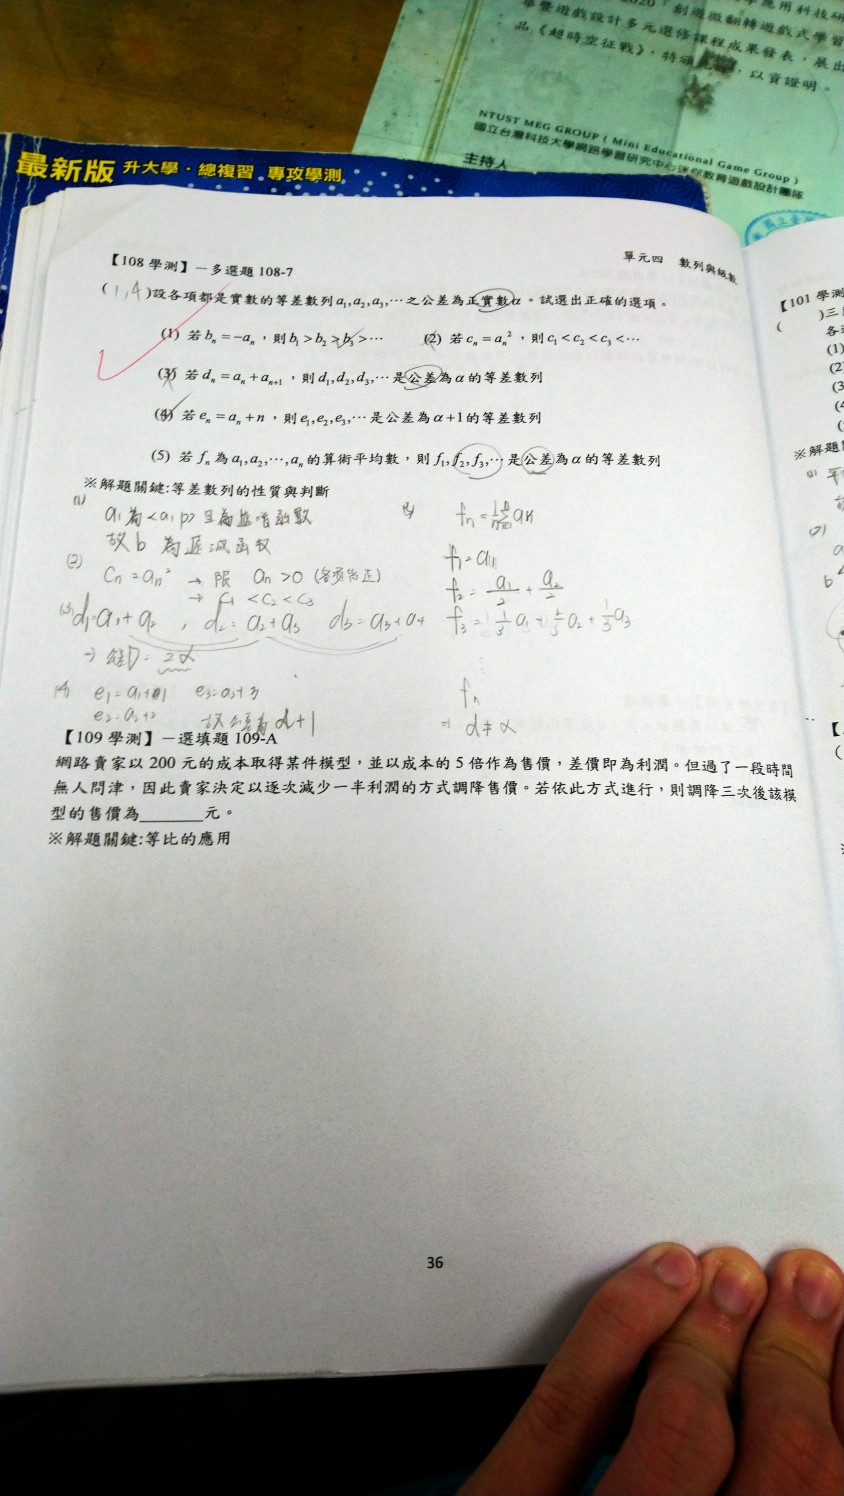 創遊微翻轉遊戲式學習
畢暨遊戲設計多元選修課程成果發表，展出
品《超時空征戰》，特頒
，以資證明。
NTUST MEG GROUP ( Mini Educational Game Group )
國立台灣科技大學網路學習研究中心迷你教育遊戲設計團隊
主持人
最新版 升大學．總複習 專攻學測
單元四 數列與級數
【108 學測】－多選題 108-7
( 1,4 )設各項都是實數的等差數列a₁,a₂,a₃,⋯之公差為正實數α。試選出正確的選項。
(1) 若bₙ=−aₙ，則b₁>b₂>b₃>⋯ (2) 若cₙ=aₙ²，則c₁<c₂<c₃<⋯
(3) 若dₙ=aₙ+aₙ₊₁，則d₁,d₂,d₃,⋯是公差為α的等差數列
(4) 若eₙ=aₙ+n，則e₁,e₂,e₃,⋯是公差為α+1的等差數列
(5) 若fₙ為a₁,a₂,⋯,aₙ的算術平均數，則f₁,f₂,f₃,⋯是公差為α的等差數列
※解題關鍵:等差數列的性質與判斷
(1)
故b 為遞減函數
(2)
Cₙ=aₙ² → 限 aₙ>0
→ C₁<C₂<C₃
(3) d₁=a₁+a₂ , d₂=a₂+a₃ d₃=a₃+a₄
2α
(4) e₁=a₁+1 e₃=a₃+3
e₂=a₂+2 故公差為 α+1
f₁=a₁
f₂=a₁/2+a₂/2
f₃=1/3a₁+1/3a₂+1/3a₃
⋮
fₙ
⇒ d≠α
【109 學測】－選填題 109-A
網路賣家以 200 元的成本取得某件模型，並以成本的 5 倍作為售價，差價即為利潤。但過了一段時間
無人問津，因此賣家決定以逐次減少一半利潤的方式調降售價。若依此方式進行，則調降三次後該模
型的售價為________元。
※解題關鍵:等比的應用
36
【101 學測
( )三
各
(1)
(2)
(3)
※解題